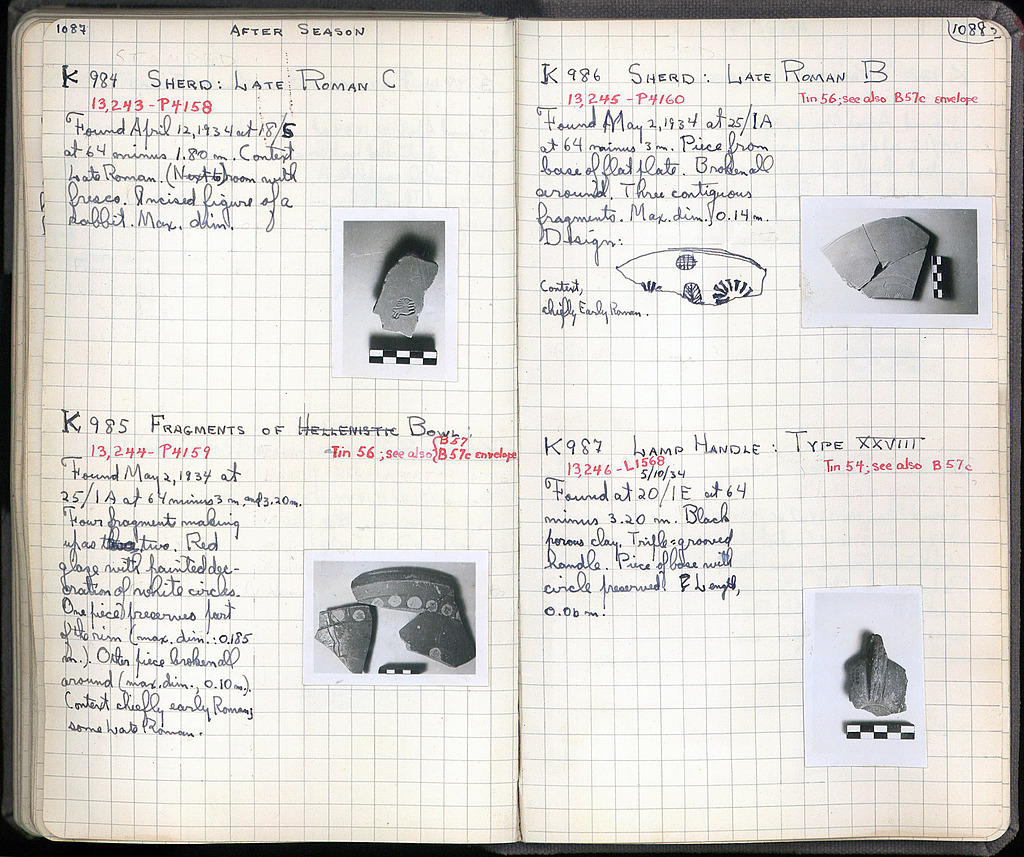 1087
AFTER SEASON
K 984 SHERD: LATE ROMAN C
13,243-P4158
Found April 12, 1934 at 18/5
at 64 minus 1.80 m. Context
Late Roman. (Next to) room with
fresco. Incised figure of a
rabbit. Max. dim.
K 985 FRAGMENTS OF HELLENISTIC BOWL:
13,244-P4159
Tin 56; see also B57
B57c envelope
Found May 2, 1934 at
25/1A at 64 minus 3 m. and 3.20 m.
Four fragment making
up as two. Red
glaze with painted dec-
oration of white circles.
One piece preserves part
of the rim (max. dim.: 0.185
m.). Other piece broken all
around (max. dim., 0.10 m.).
Context chiefly early Roman;
some Late Roman.
1088
K 986 SHERD: LATE ROMAN B
13,245-P4160
Tin 56; see also B57c envelope
Found May 2, 1934 at 25/1A
at 64 minus 3 m. Piece from
base of flat plate. Broken all
around. Three contiguous
fragments. Max. dim., 0.14 m.
Design:
Context,
chiefly Early Roman.
K 987 LAMP HANDLE: TYPE XXVIII
13,246-L1568
5/10/34
Tin 54; see also B57c
Found at 20/1E at 64
minus 3.20 m. Black
porous clay. Triple-grooved
handle. Piece of base with
circle preserved. Length,
0.06 m.